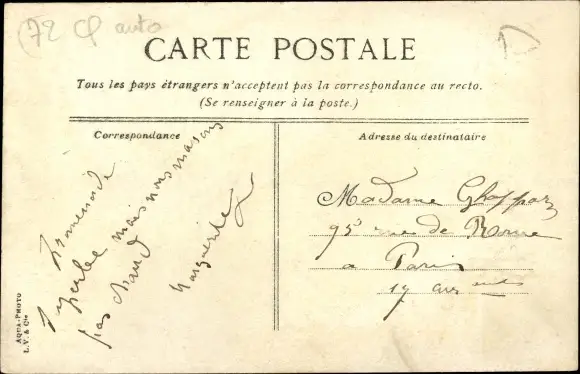 72 Cp auto
CARTE POSTALE
Tous les pays étrangers n'acceptent pas la correspondance au recto.
(Se renseigner à la poste.)
Correspondance
Promenade
superbe mais nous n'avons
pas chaud
Marguerite
AQUA-PHOTO
L.V. & Cie
Adresse du destinataire
Madame
95 rue de Rome
a Paris
17 arr